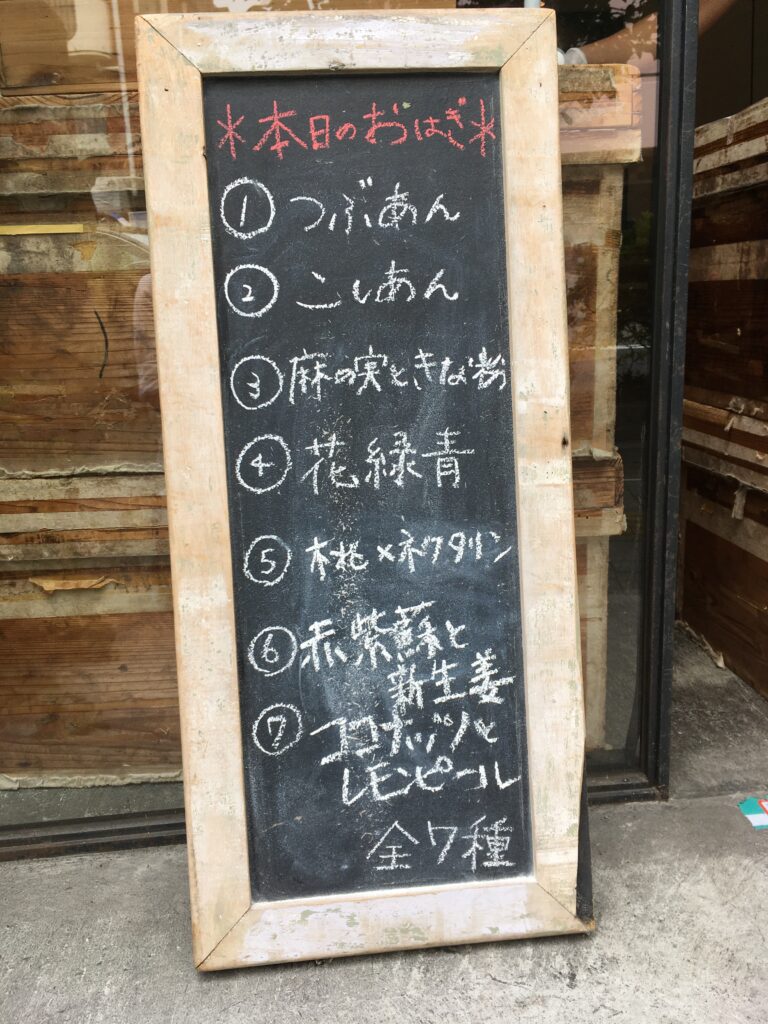 *本日のおはぎ*
① つぶあん
② こしあん
③ 麻の実ときな粉
④ 花緑青
⑤ 木苺×ネクタリン
⑥ 赤紫蘇と
新生姜
⑦ ココナッツと
レモンピール
全7種